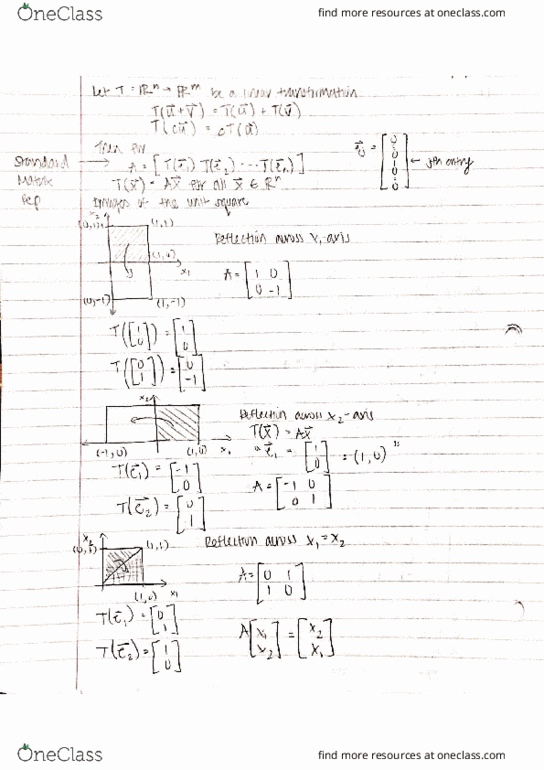 OneClass find more resources at oneclass.com
Let T = ℝⁿ → ℝᵐ be a linear transformation
T(u⃗+v⃗) = T(u⃗) + T(v⃗)
T(cu⃗) = cT(u⃗)
Then for
Standard Matrix Rep → A = [T(e⃗₁) T(e⃗₂) ... T(e⃗ₙ)]
T(x⃗) = Ax⃗ for all x⃗ ∈ ℝⁿ
= [0 : 1 : 0] ← jth entry
Images of the unit square
x₂
(0,1) (1,1)
Reflection across x₁-axis
(1,0)
x₁
A = [1 0
0 -1]
(0,-1) (1,-1)
T([1 0]) = [1 0]
T([0 1]) = [0 -1]
x₂
Reflection across x₂-axis
T(x⃗) = Ax⃗
(-1,0) (1,0) x₁
"e⃗₁ = [1 0] = (1,0)"
T(e⃗₁) = [-1 0]
A = [-1 0
0 1]
T(e⃗₂) = [0 1]
x₂
(0,1) (1,1)
Reflection across x₁=x₂
A = [0 1
1 0]
(1,0) x₁
T(e⃗₁) = [0 1]
A[x₁ x₂] = [x₂ x₁]
T(e⃗₂) = [1 0]
OneClass find more resources at oneclass.com